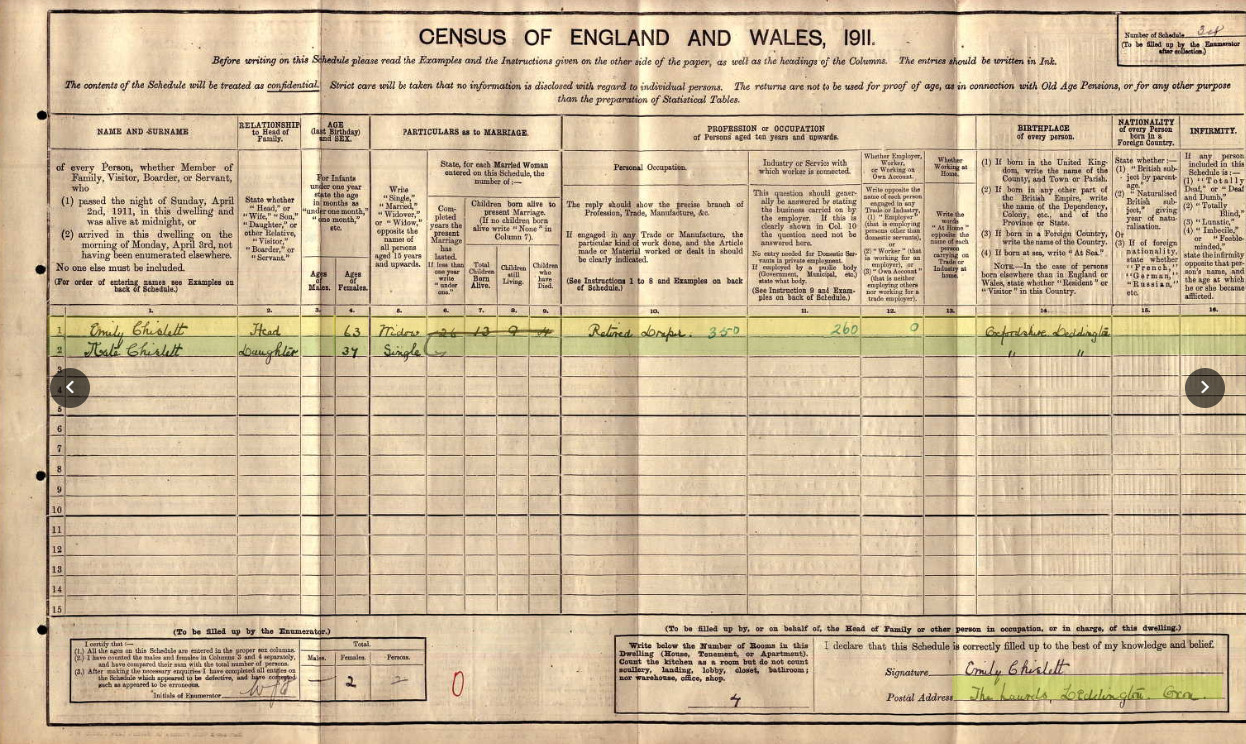 CENSUS OF ENGLAND AND WALES, 1911.
Number of Schedule
(To be filled up by the Enumerator
after collection.)
Before writing on this Schedule please read the Examples and the Instructions given on the other side of the paper, as well as the headings of the Columns. The entries should be written in Ink.
The contents of the Schedule will be treated as confidential. Strict care will be taken that no information is disclosed with regard to individual persons. The returns are not to be used for proof of age, as in connection with Old Age Pensions, or for any other purpose
than the preparation of Statistical Tables.
NAME AND SURNAME
of every Person, whether Member of
Family, Visitor, Boarder, or Servant,
who
(1) passed the night of Sunday, April
2nd, 1911, in this dwelling and
was alive at midnight, or
(2) arrived in this dwelling on the
morning of Monday, April 3rd, not
having been enumerated elsewhere.
No one else must be included.
(For order of entering names see Examples on
back of Schedule.)
RELATIONSHIP
to Head of
Family.
State whether
"Head," or
"Wife," "Son,"
"Daughter," or
other Relative,
"Visitor,"
"Boarder," or
"Servant."
AGE
(last Birthday)
and SEX.
For Infants
under one year
state the age
in months as
"under one month,"
"one month,"
etc.
Ages
of
Males.
Ages
of
Females.
PARTICULARS as to MARRIAGE.
Write
"Single,"
"Married,"
"Widower,"
or "Widow,"
opposite the
names of
persons
aged 15 years
and upwards.
State, for each Married Woman
entered on this Schedule, the
number of :—
Com-
pleted
years the
present
Marriage
has
lasted.
If less than
one year
write
"under
one."
Children born alive to
present Marriage.
(If no children born
alive write "None" in
Column 7).
Total
Children
Born
Alive.
Children
still
Living.
Children
who
have
Died.
PROFESSION or OCCUPATION
of Persons aged ten years and upwards.
Personal Occupation.
The reply should show the precise branch of
Profession, Trade, Manufacture, &c.
If engaged in any Trade or Manufacture, the
particular kind of work done, and the Article
made or Material worked or dealt in should
be clearly indicated.
(See Instructions 1 to 8 and Examples on back
of Schedule.)
Industry or Service with
which worker is connected.
This question should gener-
ally be answered by stating
the business carried on by
the employer. If this is
clearly shown in Col. 10
the question need not be
answered here.
No entry needed for Domestic Ser-
vants in private employment.
If employed by a public body
(Government, Municipal, etc.)
state what body.
(See Instruction 9 and Exam-
ples on back of Schedule.)
Whether Employer,
Worker,
or Working on
Own Account.
Write opposite the
name of each person
engaged in any
Trade or Industry,
(1) "Employer"
(that is employing
persons other than
domestic servants),
or
(2) "Worker" (that
is working for an
employer), or
(3) "Own Account"
(that is neither
employing others
nor working for a
trade employer).
Whether
Working at
Home.
Write the
words
"At Home"
opposite the
name of each
person
carrying on
Trade or
Industry at
home.
BIRTHPLACE
of every person.
(1) If born in the United King-
dom, write the name of the
County, and Town or Parish.
(2) If born in any other part of
the British Empire, write
the name of the Dependency,
Colony, etc., and of the
Province or State.
(3) If born in a Foreign Country,
write the name of the Country.
(4) If born at sea, write "At Sea."
NOTE.—In the case of persons
born elsewhere than in England or
Wales, state whether "Resident" or
"Visitor" in this Country.
NATIONALITY
of every Person
born in a
Foreign Country.
State whether :—
(1) "British sub-
ject by parent-
age."
(2) "Naturalised
British sub-
ject," giving
year of natu-
ralisation.
Or
(3) If of foreign
nationality,
state whether
"French,"
"German,"
"Russian,"
etc.
INFIRMITY.
If any person
included in this
Schedule is :—
(1) "Totally
Deaf," or "Deaf
and Dumb,"
(2) "Totally
Blind,"
(3) "Lunatic,"
(4) "Imbecile,"
or "Feeble-
minded,"
state the infirmity
opposite that per-
son's name, and
the age at which
he or she became
afflicted.
1. 2. 3. 4. 5. 6. 7. 8. 9. 10. 11. 12. 13. 14. 15. 16.
1 Emily Chislett Head 63 Widow 26 13 9 4 Retired Draper. 350 260 0 Oxfordshire Deddington
2 Kate Chislett Daughter 37 Single " "
3
4
5
6
7
8
9
10
11
12
13
14
15
(To be filled up by the Enumerator.)
I certify that :—
(1.) All the ages on this Schedule are entered in the proper sex columns.
(2.) I have counted the males and females in Columns 3 and 4 separately,
and have compared their sum with the total number of persons.
(3.) After making the necessary enquiries I have completed all entries on
the Schedule which appeared to be defective, and have corrected
such as appeared to be erroneous.
Initials of Enumerator
Total.
Males. Females. Persons.
— 2 2
0
(To be filled up by, or on behalf of, the Head of Family or other person in occupation, or in charge, of this dwelling.)
Write below the Number of Rooms in this
Dwelling (House, Tenement, or Apartment).
Count the kitchen as a room but do not count
scullery, landing, lobby, closet, bathroom;
nor warehouse, office, shop.
4
I declare that this Schedule is correctly filled up to the best of my knowledge and belief.
Signature Emily Chislett
Postal Address The Laurels, Deddington. Oxon.